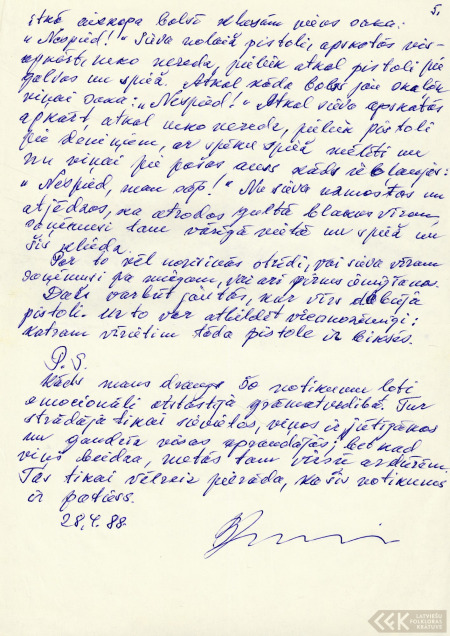 5.
etkā aizkapa balss klusām viņas saka:
"Nespied!" Sieva nolaiž pistoli, apskatās vis-
apkārt, neko nereda, pieliek atkal pistoli pie
galvas un spiež. Atkal kāda balss jau skaļāk
viņai saka: "Nespied!" Atkal sieva apskatās
apkārt, atkal neko neredz, pieliek pistoli
pie deniņiem, ar spēku spiež mēlīti un
nu viņai pie pašas auss kāds iebļaujas:
"Nespied, man sāp!" Nu sieva namostas un
atjēdzas, ka atrodas gultā blakus vīram,
saņēmusi tam vārīgā vietā un spiež un
šis kliedz.
Par to vēl nozinās strīdi, vai sieva vīram
saņēmusi pa miegam, vai arī pirms iemigšanas.
Daži varbūt jautās, kur vīrs dabūja
pistoli. Uz to var atbildēt viennozīmīgi:
katram vīrietim tāda pistole ir biksēs.
P.S.
Kāds mans draugs šo notikumu ļoti
emocionāli atstāstīja grāmatvedībā. Tur
strādāja tikai sievietes, viņas ir jūtīgākas
un gandrīz visas apraudājās; bet kad
viņš beidza, metās tam virsū ar dūrēm.
Tas tikai vēlreiz pierāda, ka šis notikums
ir patiess.
28.4.88.
LATVIEŠU
FOLKLORAS
KRĀTUVE